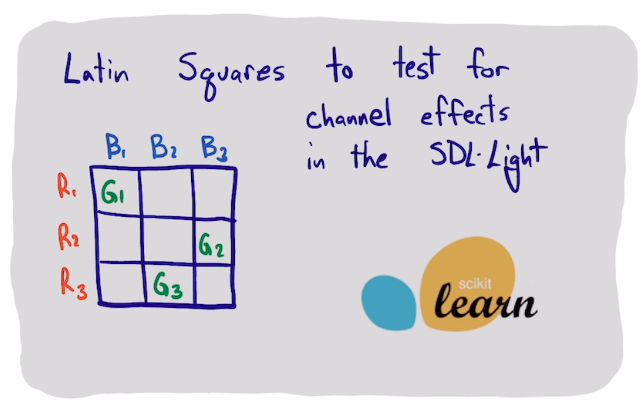 Latin Squares to test for
channel effects
in the SDL-Light
B1 B2 B3
R1 G1
R2 G2
R3 G3
scikit
learn